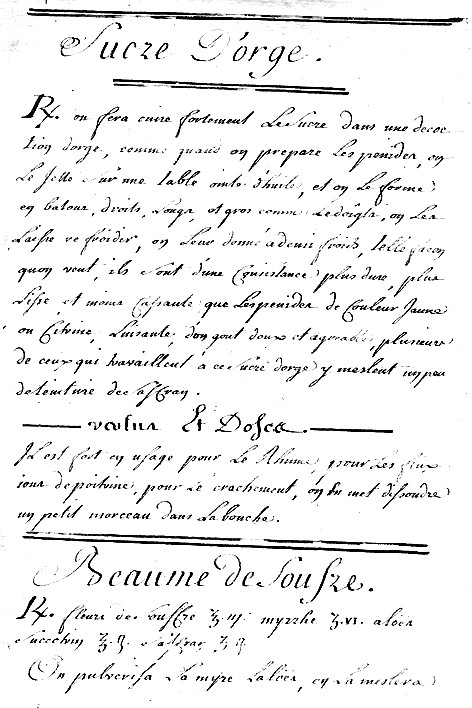 Sucre D'orge.
℞. on fera cuire fortement Le Sucre dans une decoc
tion dorge, comme quand on prepare Les penides, on
Le Jette sur une table ointe d'huile, et on Le forme
en batons, droits, Longs et gros comme Le doigts, on Les
Laisse refroider, on Leur donne a demi froids, telle facon
quon veut, ils sont d'une Consistance plus dure, plus
Lisse et moins Cassante que Les penides de Couleur Jaune
ou Citrine, Luisante, d'un gout doux et agreable, plusieurs
de ceux qui travaillent a ce Sucre dorge y meslent un peu
de teinture de saffran.
vertus Et Doses.
Il est fort en usage pour Le Rhume, pour Les flux
ions de poitrine, pour Le crachement, on En met dissoudre
un petit morceau dans La bouche.
Beaume de Soufre.
℞. fleurs de souffre ℥ iij. myrrhe ʒ. vi. aloës
Succotrin
On pulverisa La myre Laloës, on La meslera